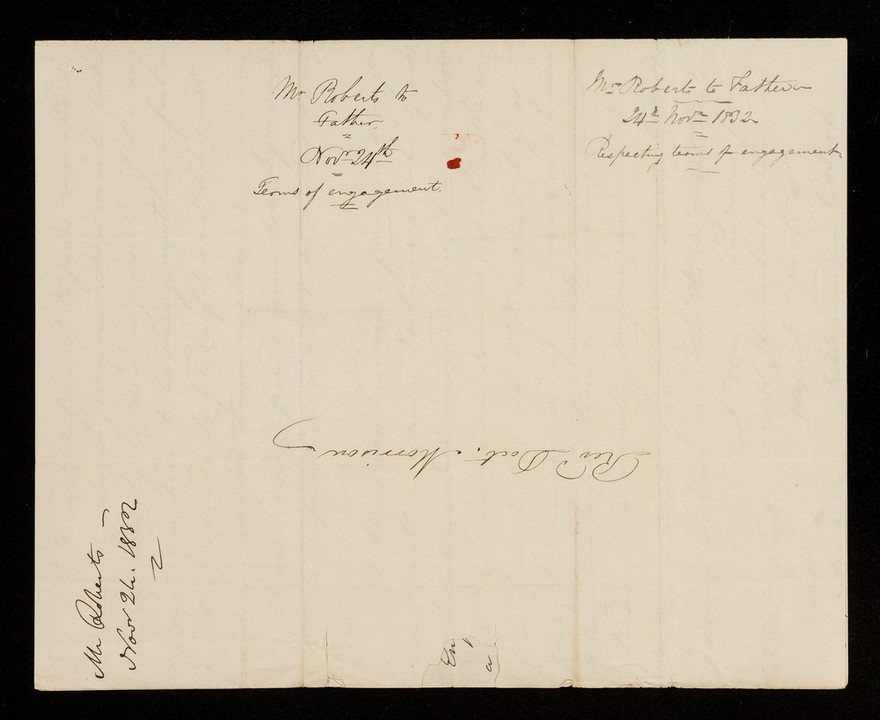 Mr. Roberts to
Father.
Novr. 24th
Terms of engagement.
Mr. Roberts to Father
24th Novr. 1832
Respecting terms of engagement.
Revd. Doct. Morrison
Mr Roberts
Nov 24. 1832